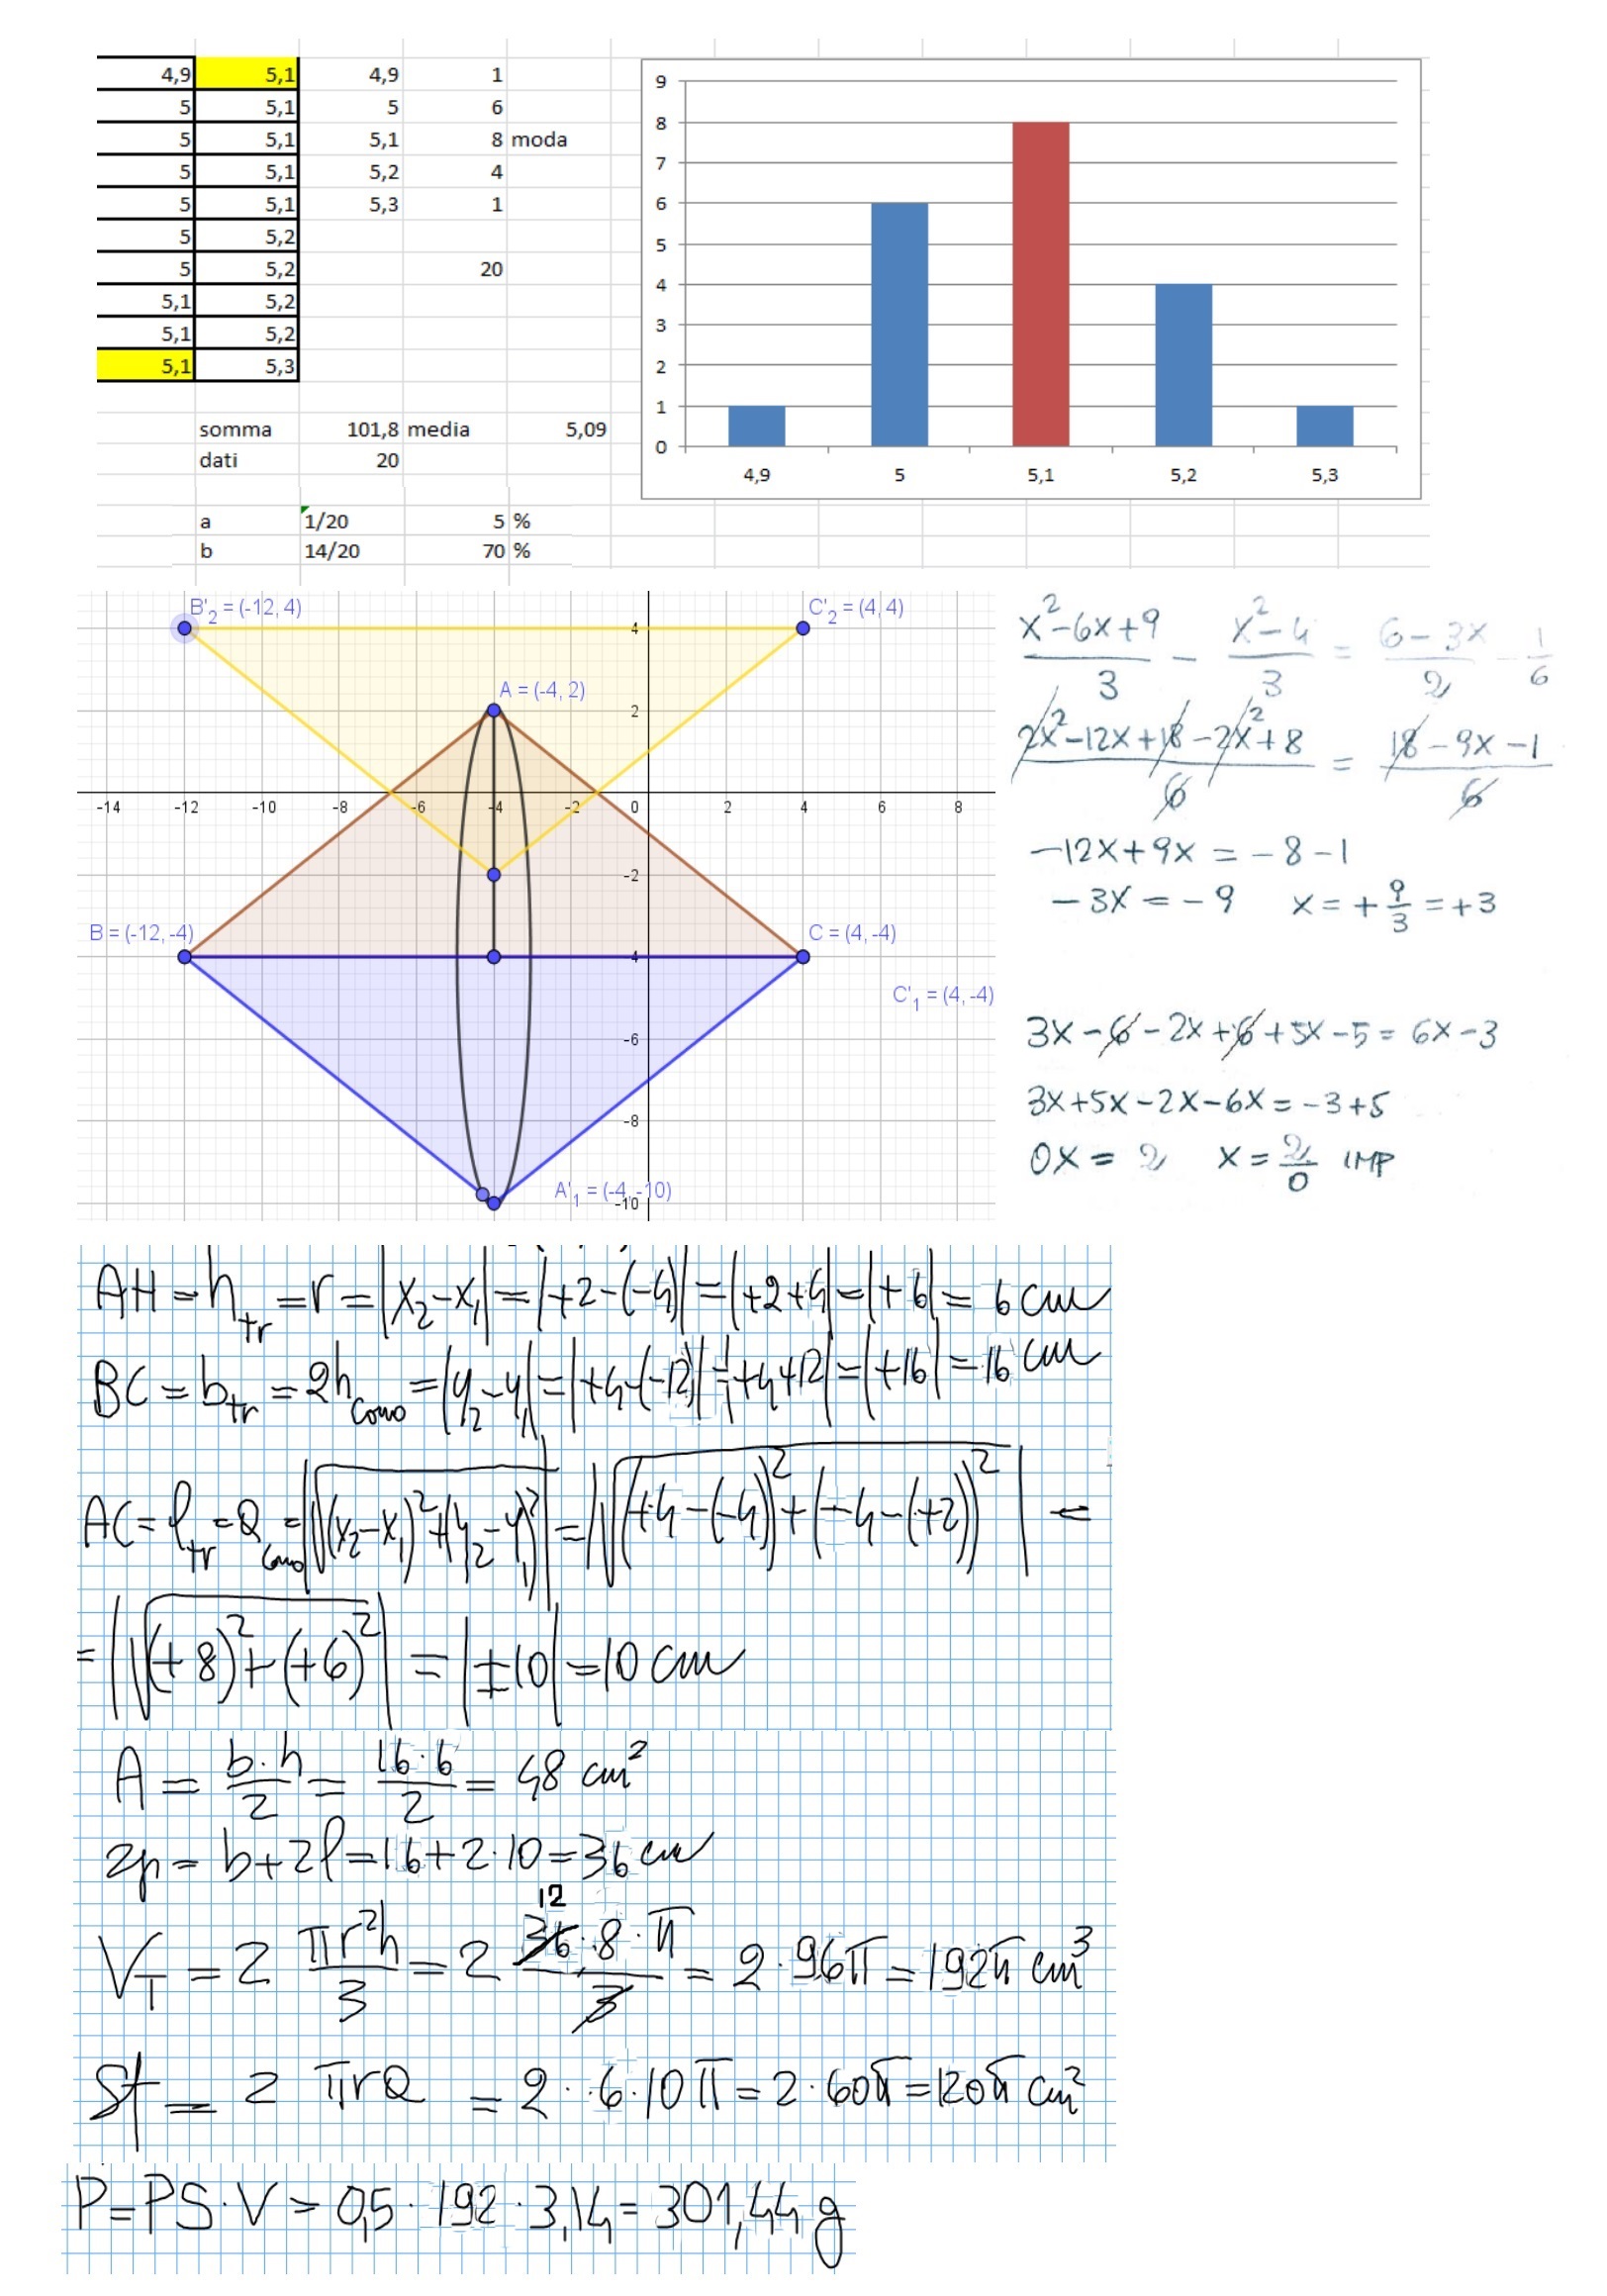 4,9 5,1 4,9 1
5 5,1 5 6
5 5,1 5,1 8 moda
5 5,1 5,2 4
5 5,1 5,3 1
5 5,2
5 5,2 20
5,1 5,2
5,1 5,2
5,1 5,3
somma 101,8 media 5,09
dati 20
a 1/20 5 %
b 14/20 70 %
9
8
7
6
5
4
3
2
1
0
4,9 5 5,1 5,2 5,3
B'₂ = (-12, 4) C'₂ = (4, 4)
4
A = (-4, 2)
2
-14 -12 -10 -8 -6 -4 -2 0 2 4 6 8
-2
B = (-12, -4) C = (4, -4)
-4
C'₁ = (4, -4)
-6
-8
A'₁ = (-4, -10)
-10
(x²-6x+9)/3 - (x²-4)/3 = (6-3x)/2 - 1/6
(2x²-12x+18-2x²+8)/6 = (18-9x-1)/6
-12x+9x = -8-1
-3x = -9 x = +9/3 = +3
3x-6-2x+6+5x-5 = 6x-3
3x+5x-2x-6x = -3+5
0x = 2 x = 2/0 IMP
AH = h_tr = r = |x₂-x₁| = |+2-(-4)| = |+2+4| = |+6| = 6 cm
BC = b_tr = 2h_cono = |y₂-y₁| = |+4-(-12)| = |+4+12| = |+16| = 16 cm
AC = l_tr = a_cono = |√((x₂-x₁)²+(y₂-y₁)²)| = |√((+4-(-4))²+(-4-(+2))²)| =
= |√((+8)²+(+6)²)| = |±10| = 10 cm
A = b·h/2 = 16·6/2 = 48 cm²
2p = b+2l = 16+2·10 = 36 cm
12
V_T = 2 πr²h/3 = 2 36·8·π/3 = 2·96π = 192π cm³
St = 2 πra = 2·6·10π = 2·60π = 120π cm²
P = PS·V = 0,5·192·3,14 = 301,44 g